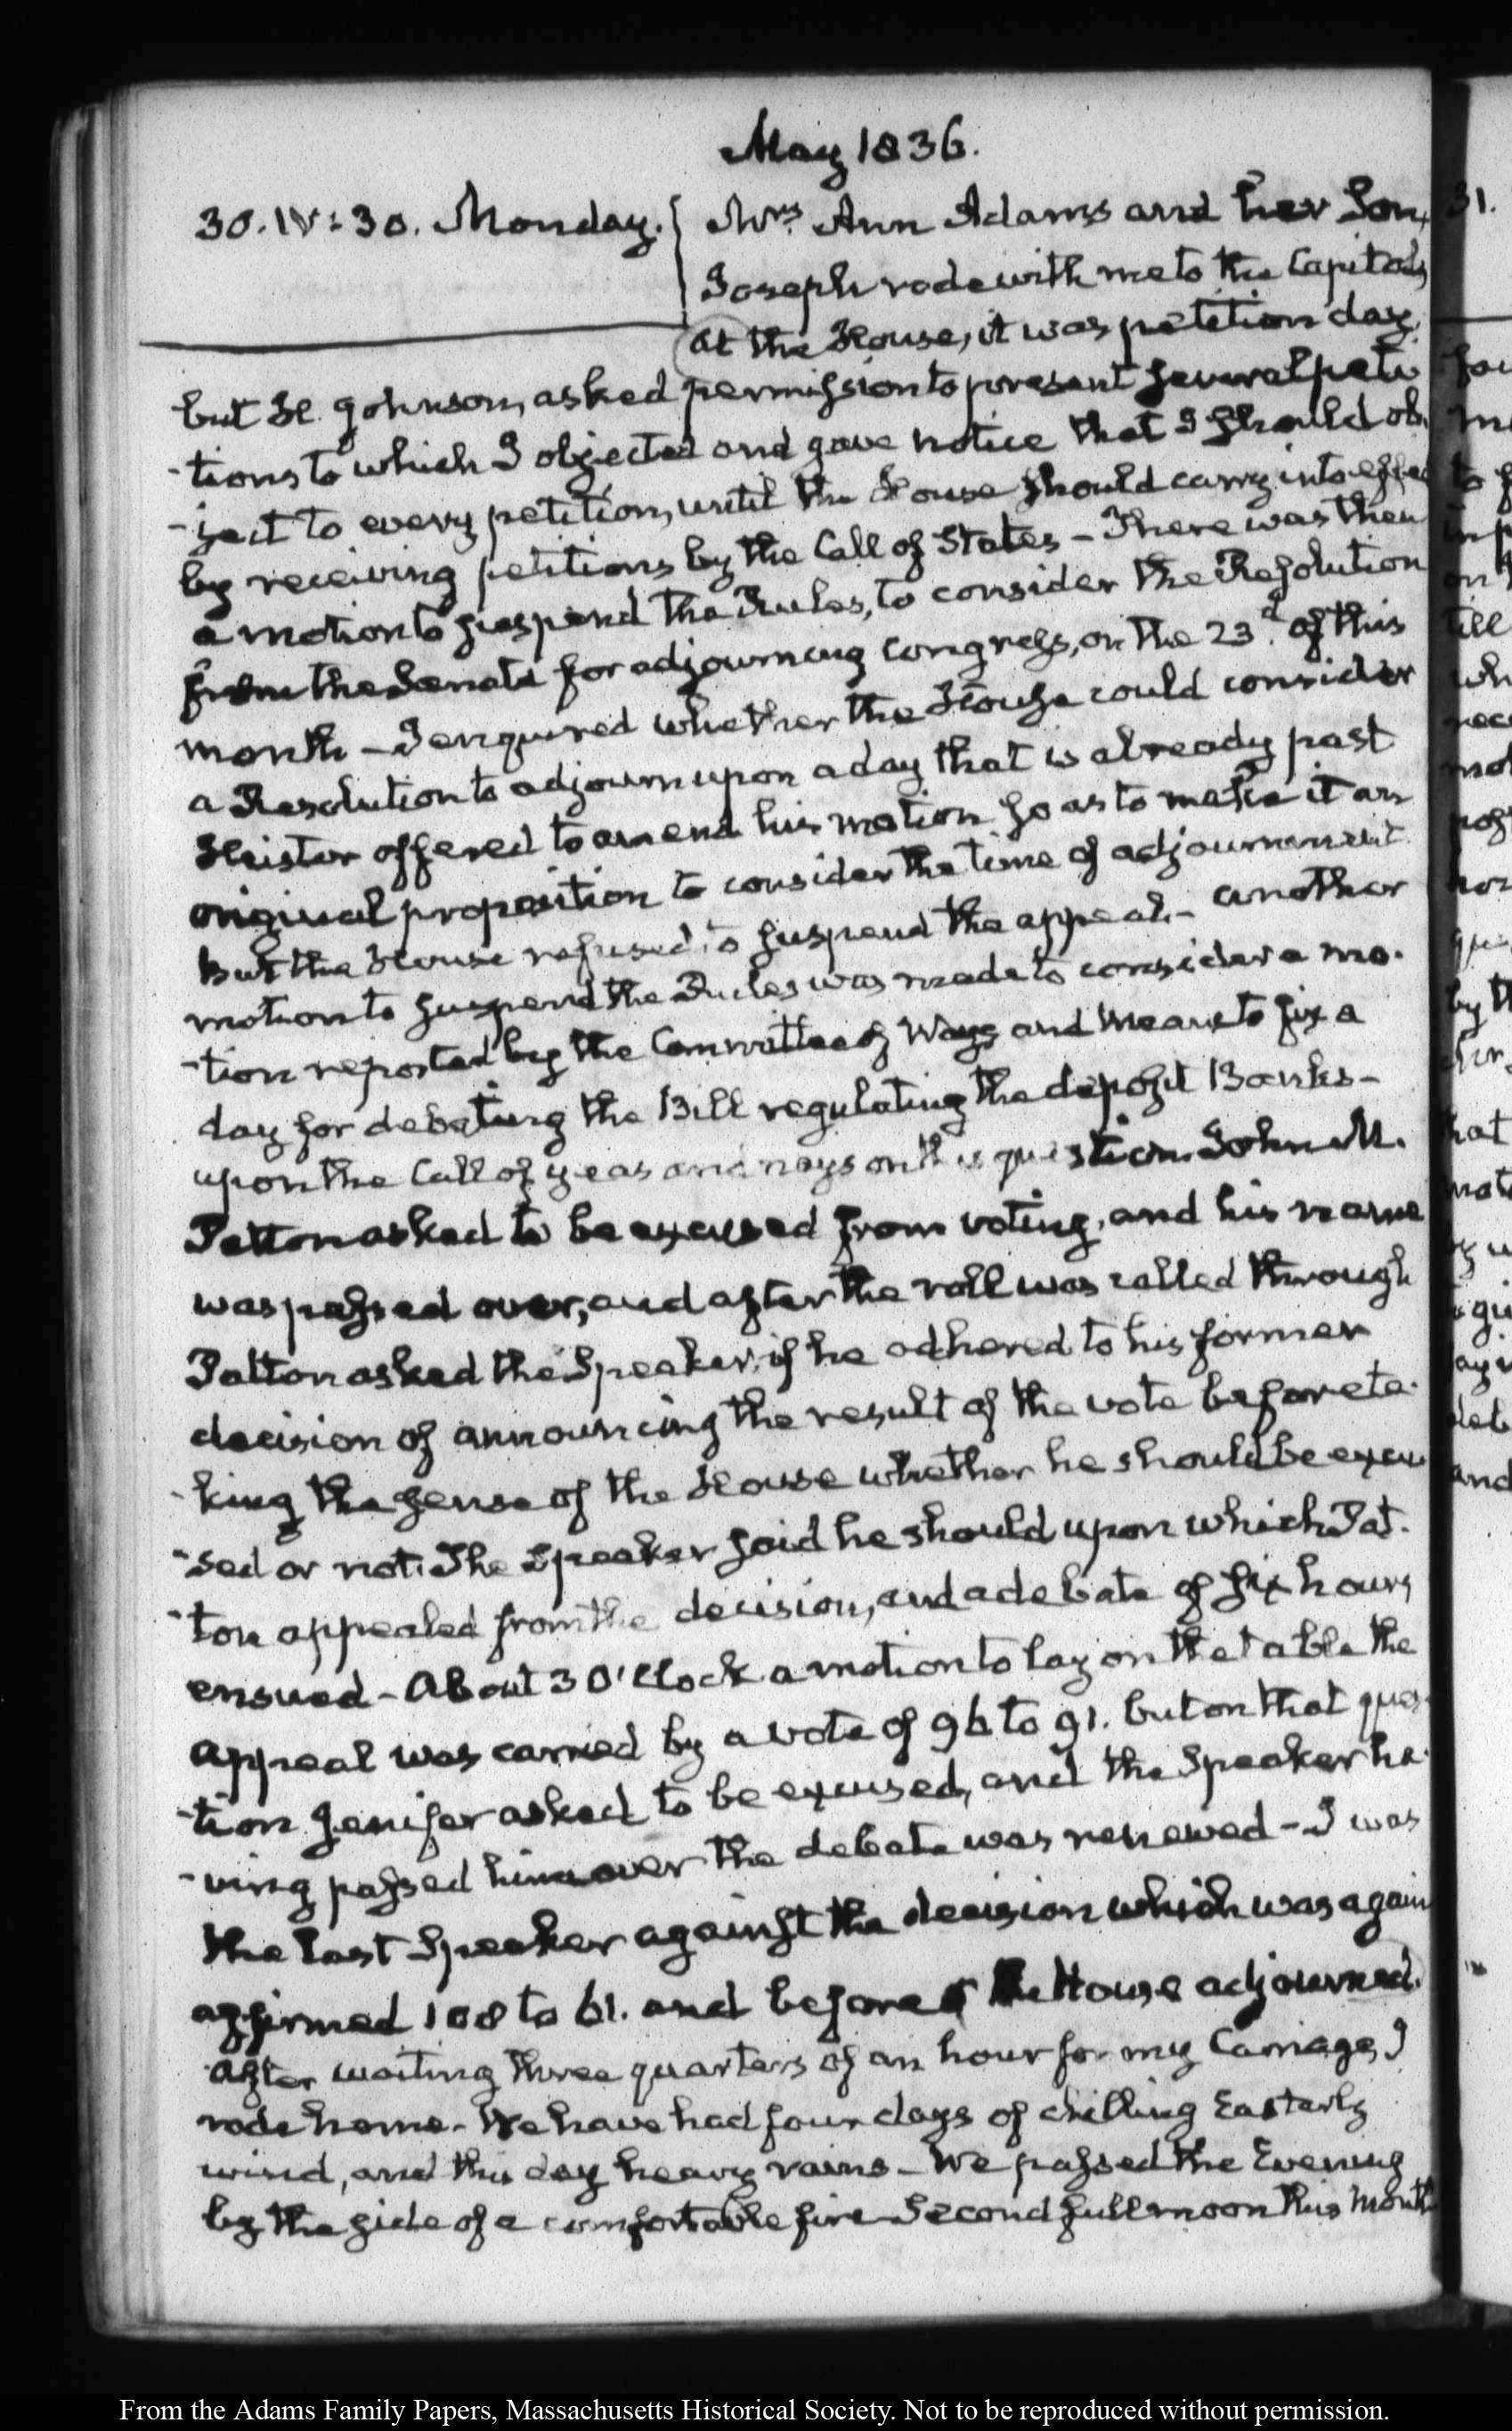 May 1836.
30. IV: 30. Monday. { Mrs. Ann Adams and her Son,
31.
Joseph rode with me to the Capitol,
At the House, it was petition day,
but H. Johnson, asked permission to present several peti
-tions to which I objected and gave notice that I should ob
-ject to every petition, until the House should carry into effec
by receiving petitions by the Call of States – There was then
a motion to suspend the Rules, to consider the Resolution
from the Senate for adjourning Congress, on the 23d. of this
month – I enquired whether the House could consider
a Resolution to adjourn upon a day that is already past
Heister offered to amend his motion so as to make it an
original proposition to consider the time of adjournment
But the House refused to suspend the appeal – another
motion to suspend the Rules was made to consider a mo-
-tion reported by the Committee of Ways and Means to fix a
day for debating the Bill regulating the deposit Banks –
upon the Call of yeas and nays on this question John M.
Patton asked to be excused from voting, and his name
was passed over, and after the roll was called through
Patton asked the Speaker, if he adhered to his former
decision of announcing the result of the vote before ta-
-king the sense of the House whether he should be excu
-sed or not. The Speaker said he should upon which Pat-
-ton appealed from the decision, and a debate of six hours
ensued – About 3 O'Clock a motion to lay on the table the
appeal was carried by a vote of 96 to 91. but on that ques
-tion Jenifer asked to be excused, and the Speaker ha-
-ving passed him over the debate was renewed – I was
the last Speaker against the decision which was again
affirmed 108 to 61. and before the House adjourned.
After waiting three quarters of an hour for my Carriage, I
rode home. We have had four days of chilling Easterly
wind, and this day heavy rains – We passed the Evening
by the side of a comfortable fire – Second full moon this month
From the Adams Family Papers, Massachusetts Historical Society. Not to be reproduced without permission.